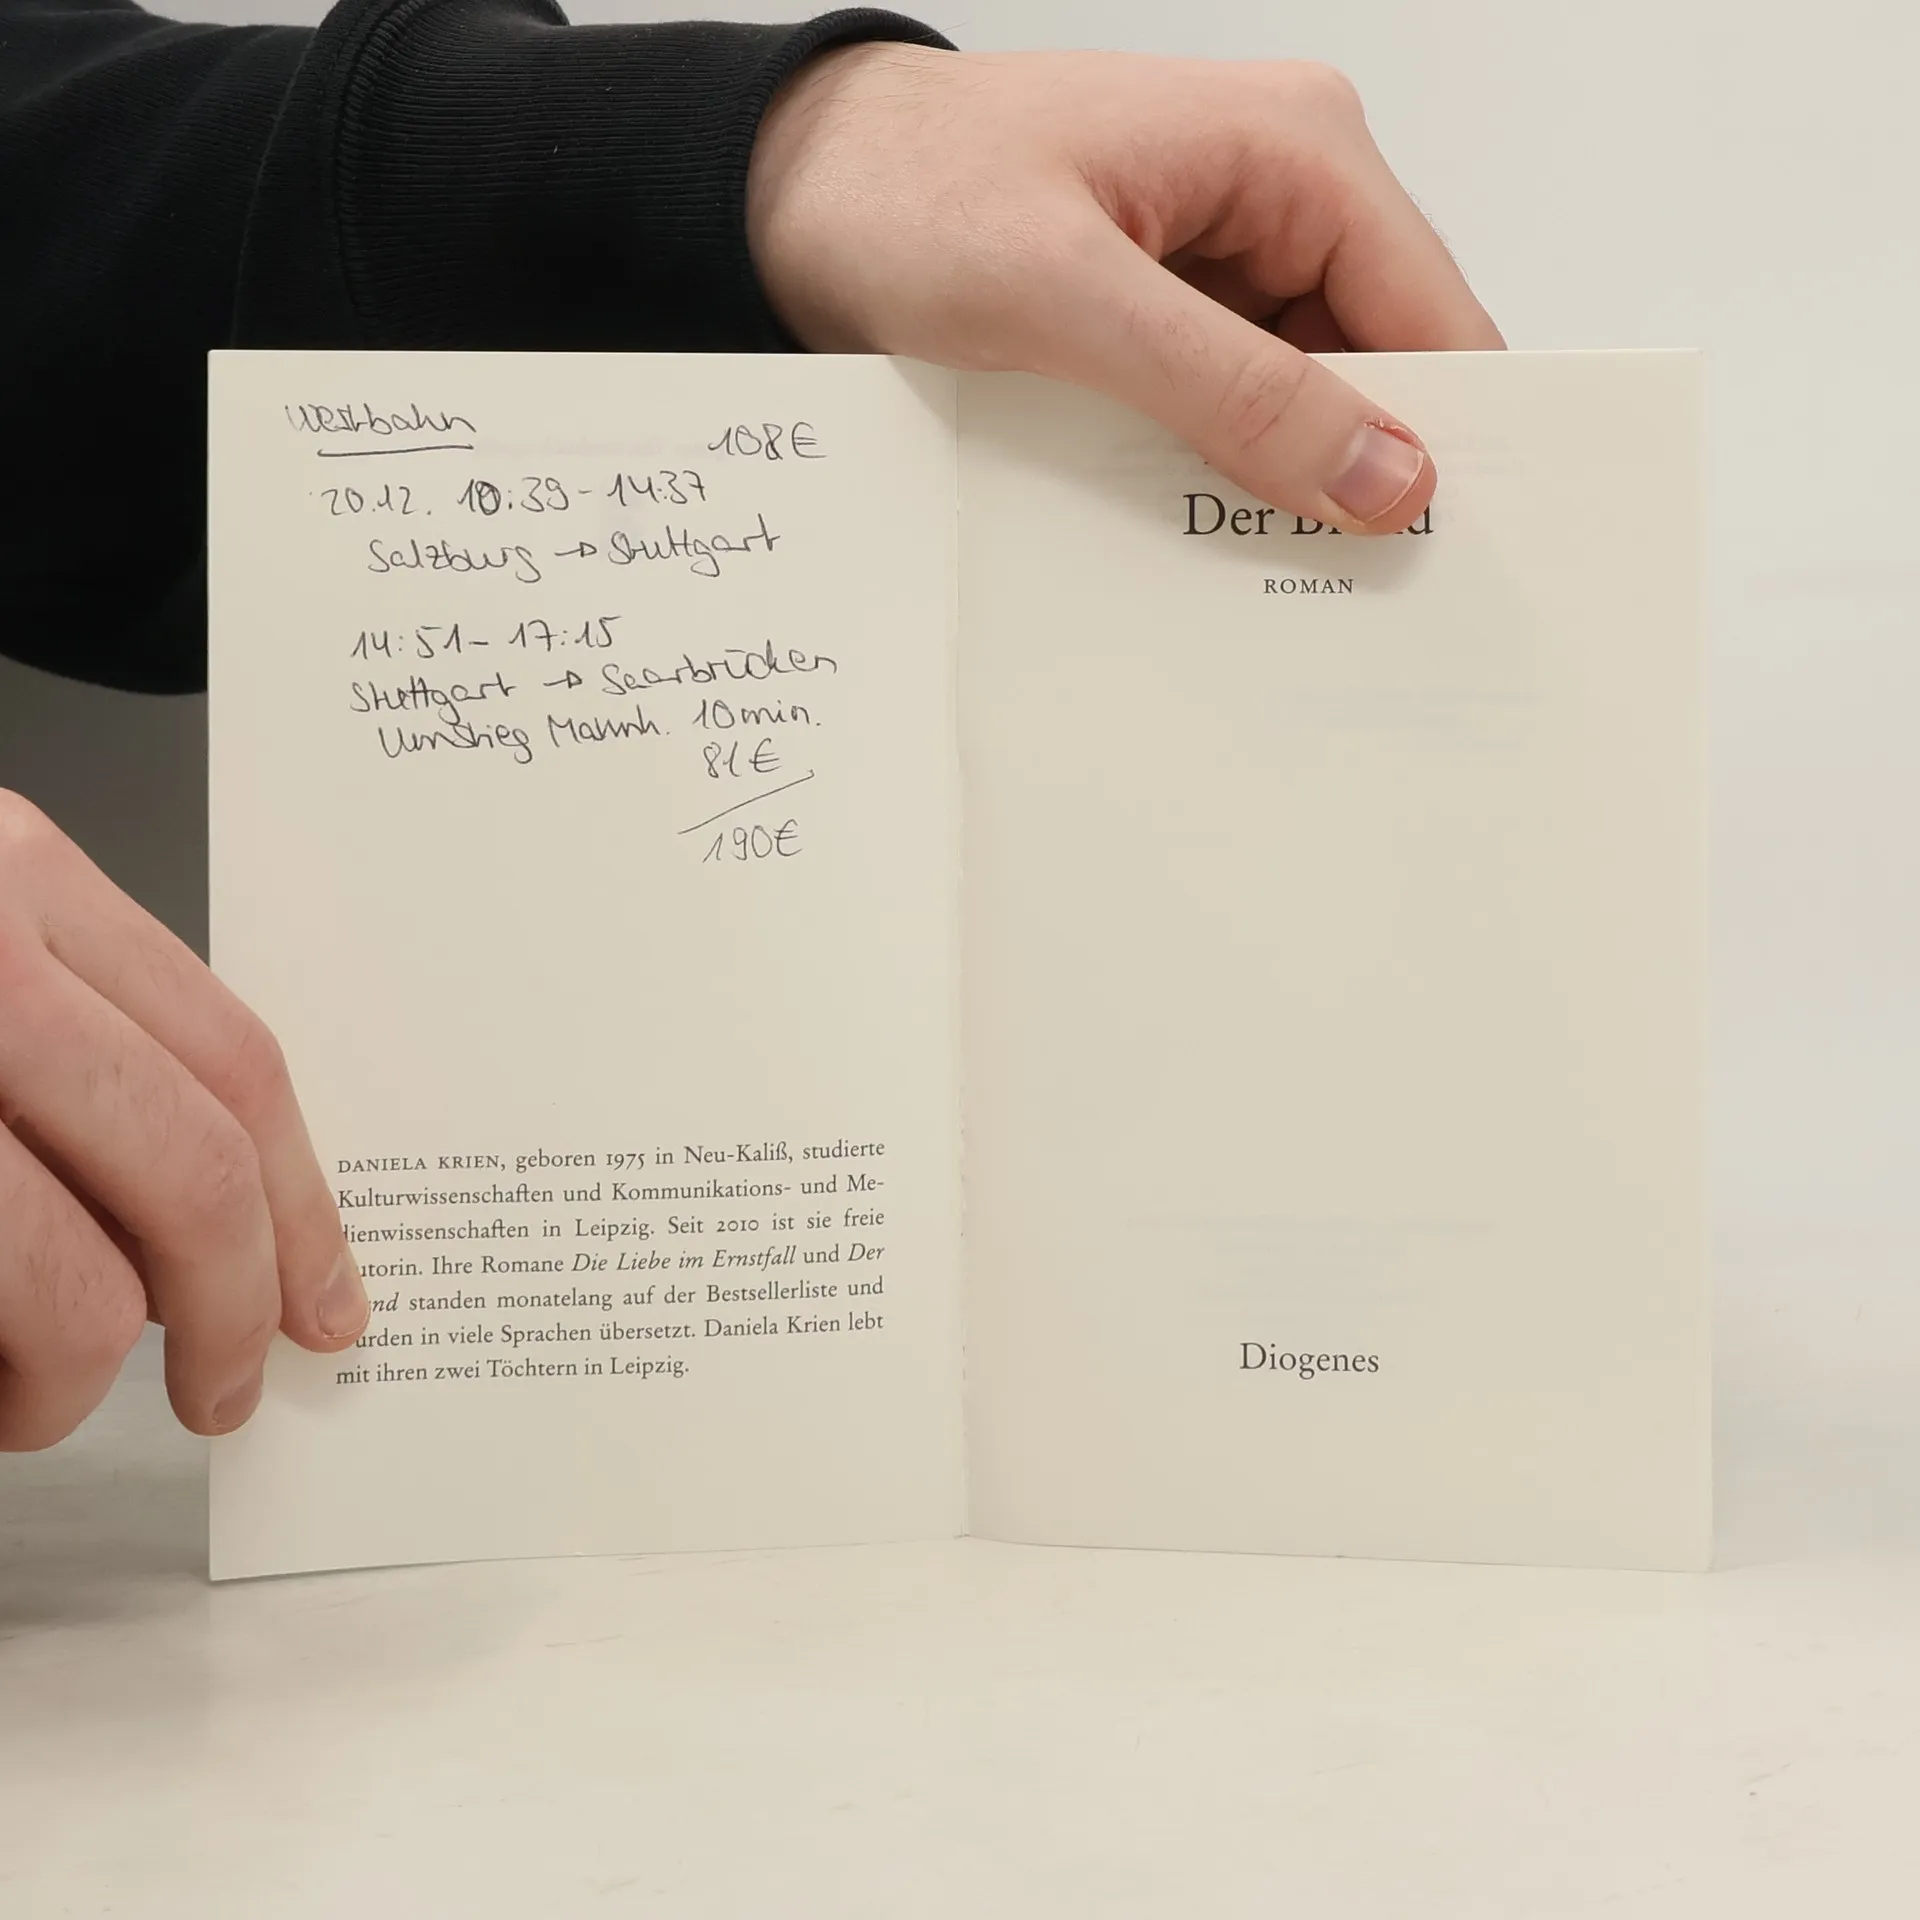 Westbahn
108€
20.12. 10:39 - 14:37
Salzburg → Stuttgart
14:51 - 17:15
Stuttgart → Saarbrücken
Umstieg Mannh. 10 min.
81€
190€
DANIELA KRIEN, geboren 1975 in Neu-Kaliß, studierte
Kulturwissenschaften und Kommunikations- und Me-
dienwissenschaften in Leipzig. Seit 2010 ist sie freie
utorin. Ihre Romane Die Liebe im Ernstfall und Der
nd standen monatelang auf der Bestsellerliste und
urden in viele Sprachen übersetzt. Daniela Krien lebt
mit ihren zwei Töchtern in Leipzig.
Der
ROMAN
Diogenes